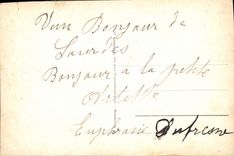 Un Bonjour de
Lourdes
Bonjour à la petite
Euphrasie Dufresne